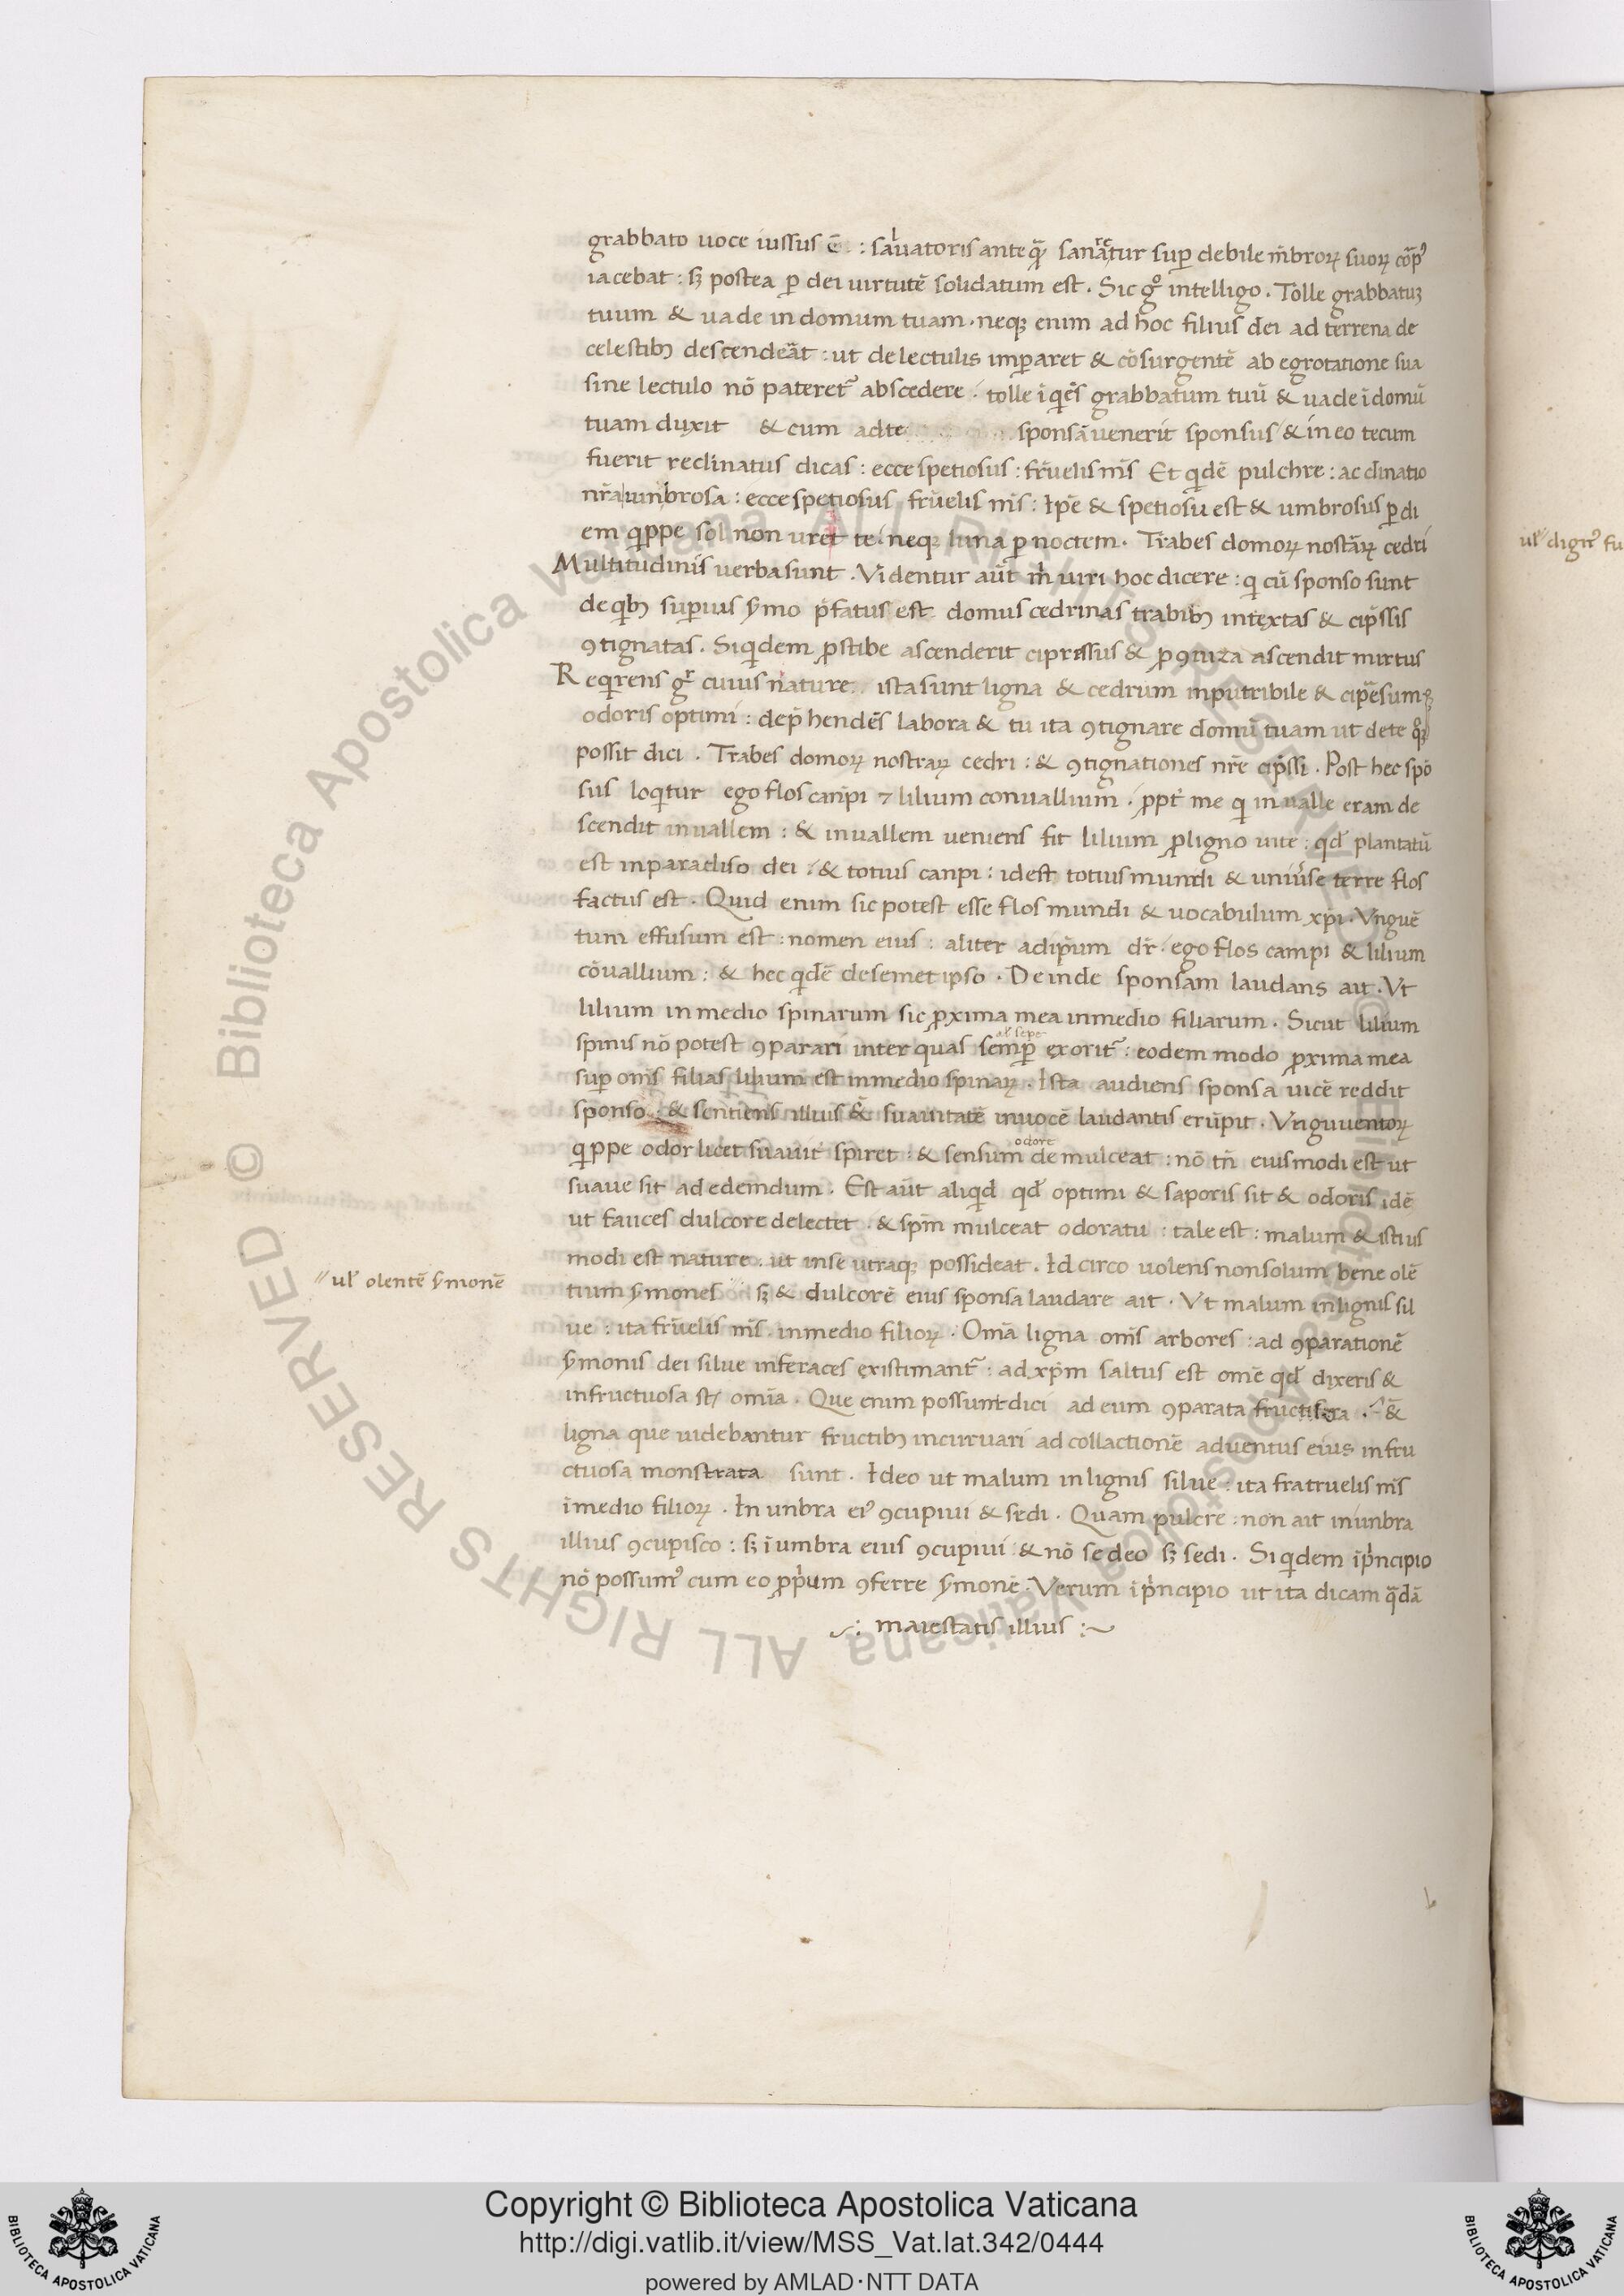 grabbato uoce iussus ē : saluatoris ante q̄ꝫ sanaretur suꝑ debile mẽbroꝝ suoꝝ corp᷒
iacebat : sꝫ postea ꝑ dei uirtutē solidatum est . Sic gͦ intelligo . Tolle grabbatuꝫ
tuum & uade in domum tuam . neqꝫ enim ad hoc filius dei ad terrena de
celestibꝫ descenderat : ut de lectulis imꝑaret & cōsurgentē ab egrotatione sua
sine lectulo nō pateret᷑ abscedere . tolle iqͥēs grabbatum tuū & uade ī domū
tuam duxit & cum ad te sponsā uenerit sponsus & in eo tecum
fuerit reclinatus dicas : ecce spetiosus : fr̄uelis m̄s Et qͥdē pulchre : ac clinatio
nr̄a umbrosa : ecce spetiosus fr̄uelis m̄s : Ip̄e & spetiosu est & umbrosus ꝑ di
em qͥppe sol non uret te : neqꝫ luna ꝑ noctem . Trabes domoꝝ nostrāꝝ cedri
Multitudinis uerba sunt . Videntur aūt m̄ uiri hoc dicere : qͥ cū sponso sunt
de qͥbꝫ suꝑius ẜmo p̄fatus est domus cedrinas trabibꝫ intextas & cip̄ssis
ꝯtignatas . Siqͥdem ꝓ stibe ascenderit ciprissus & ꝓ ꝯiuza ascendit mirtus
Reqͥrens gͬ cuius nature ista sunt ligna & cedrum inputribile & cip̄esum qꝫ
odoris optimi : dep̄hendēs labora & tu ita ꝯtignare domū tuam ut de te qͦqꝫ
possit dici . Trabes domoꝝ nostraꝝ cedri : & ꝯtignationes nr̄e cip̄ssi . Post hec spō
sus loqͥtur ego flos canpi ⁊ lilium conuallium . ꝓpt̄ me qͥ in ualle eram de
scendit in uallem : & in uallem ueniens fit lilium ꝓ ligno uite : qd̄ plantatū
est in paradiso dei : & totius canpi : idest totius mundi & uniūse terre flos
factus est . Quid enim sic potest esse flos mundi & uocabulum xp̄i . Vnguē
tum effusum est : nomen eius : aliter adip̄um dr̄ . ego flos campi & lilium
cōuallium : & hec qͥdē de semet ipso . Deinde sponsam laudans ait . Vt
lilium in medio spinarum sic ꝓxima mea in medio filiarum . Sicut lilium
al̄ sepe
spinis nō potest ꝯparari inter quas semꝑ exorit᷑ : eodem modo ꝓxima mea
suꝑ om̄s filias lilium est in medio spinaꝝ . Ista audiens sponsa uicē reddit
sponso : & sentiens illius & suauitatē in uocē laudantis erūpit . Vnguentoꝝ
odore
qͥppe odor licet suauit̄ spiret : & sensum demulceat : nō tn̄ eiusmodi est ut
suaue sit ad edemdum . Est aūt aliqͥd qd̄ optimi & saporis sit & odoris idē
ut fauces dulcore delectet . & sp̄m mulceat odoratu : tale est : malum & istius
modi est nature : ut in se utraqꝫ possideat . Idcirco uolens non solum bene olē
// ul᷑ olentē ẜmonē
tium ẜmones // sꝫ & dulcorē eius sponsa laudare ait . Vt malum in lignis sil
ue : ita fr̄uelis m̄s in medio filioꝝ . Om̄a ligna om̄s arbores : ad ꝯparationē
ẜmonis dei silue inferaces existimant᷑ : ad xp̄m saltus est om̄e qd̄ dixeris &
infructuosa st̄ omīa . Que enim possunt dici ad eum ꝯparata fructifera . &
ligna que uidebantur fructibꝫ incuruari ad collactionē aduentus eius infru
ctuosa monstrata sunt . Ideo ut malum in lignis silue : ita fratruelis m̄s
ī medio filioꝝ . In unbra ei᷒ ꝯcupiui & sedi . Quam pulcre : non ait in unbra
illius ꝯcupisco : sꝫ ī umbra eius ꝯcupiui : & nō sedeo sꝫ sedi . Siqͥdem ī pͥncipio
nō possum᷒ cum eo ꝓpͥum ꝯferre ẜmonē . Verum ī pͥncipio ut ita dicam qͣdā
maiestatis illius :~
Copyright © Biblioteca Apostolica Vaticana
http://digi.vatlib.it/view/MSS_Vat.lat.342/0444
powered by AMLAD·NTT DATA